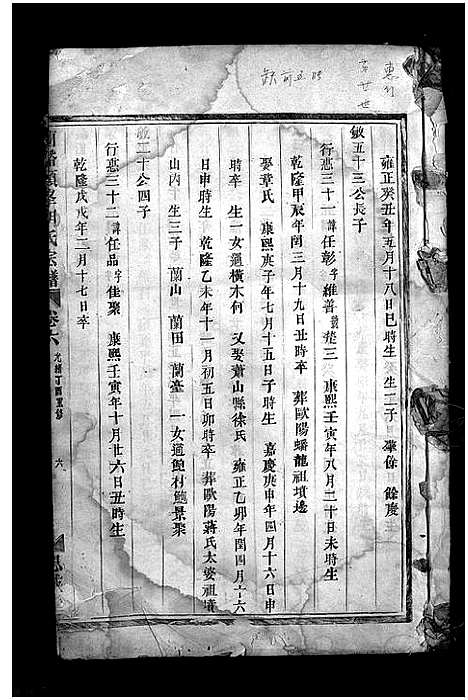 東行
廿世
缺前五頁
雍正癸丑年五月十八日巳時生 生二子 肇餘 餘慶
敏五十三公長子
行憑三十一 諱任彰 字維善 號楚三 康熙壬寅年八月二十日未時生
乾隆甲辰年閏三月十九日丑時卒 葬歐陽蟠龍祖墳邊
娶章氏 康熙庚子年七月十五日子時生 嘉慶庚申年四月十六日申
時卒 生一女適橫木何 又娶蕭山縣徐氏 雍正乙卯年閏四月十六
日申時生 乾隆乙未年十一月初五日卯時卒 葬歐陽蔣氏太婆祖墳
山內 生三子 蘭山 蘭田 蘭臺 一女適蝕材鮑景聚
敏二十公四子
行憑三十二 諱任品 字佳聚 康熙壬寅年十月廿六日丑時生
乾隆戊戌年二月十七日卒
氏宗譜 卷六 光緒丁酉重修 六